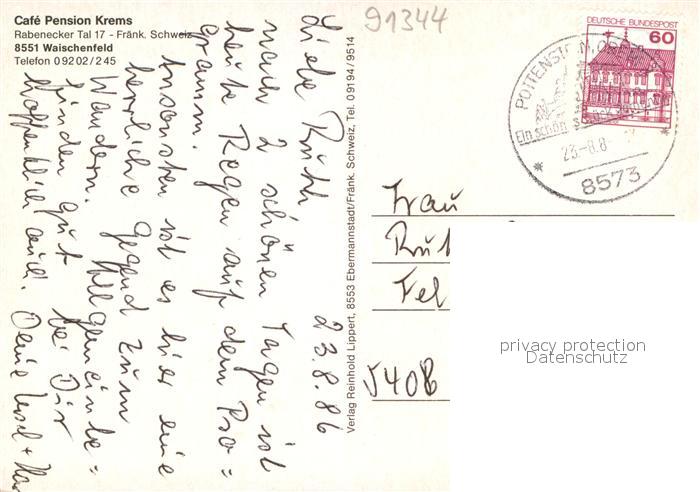 Café Pension Krems
Rabenecker Tal 17 - Fränk. Schweiz
8551 Waischenfeld
Telefon 0 92 02 / 2 45
91344
DEUTSCHE BUNDESPOST
60
POTTENSTEIN
Ein schön
23.-8.8
8573
23.8.86
Liebe Ruth
nach 2 schönen Tagen ist
heute Regen auf dem Pro=
gramm.
Ansonsten ist es hier eine
herrliche Gegend zum
Wandern. Allgemeinbe=
finden gut bei Dir
hoffentlich auch. Deine
Verlag Reinhold Lippert, 8553 Ebermannstadt/Fränk. Schweiz, Tel. 09194/9514
Frau
Rut
Fel
5408
privacy protection
Datenschutz